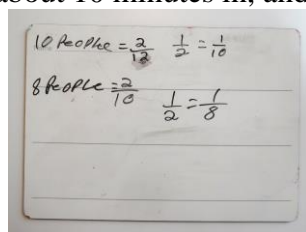 about 10 minutes in, and
10 People = 2/12 1/2 = 1/10
8 People = 2/10 1/2 = 1/8